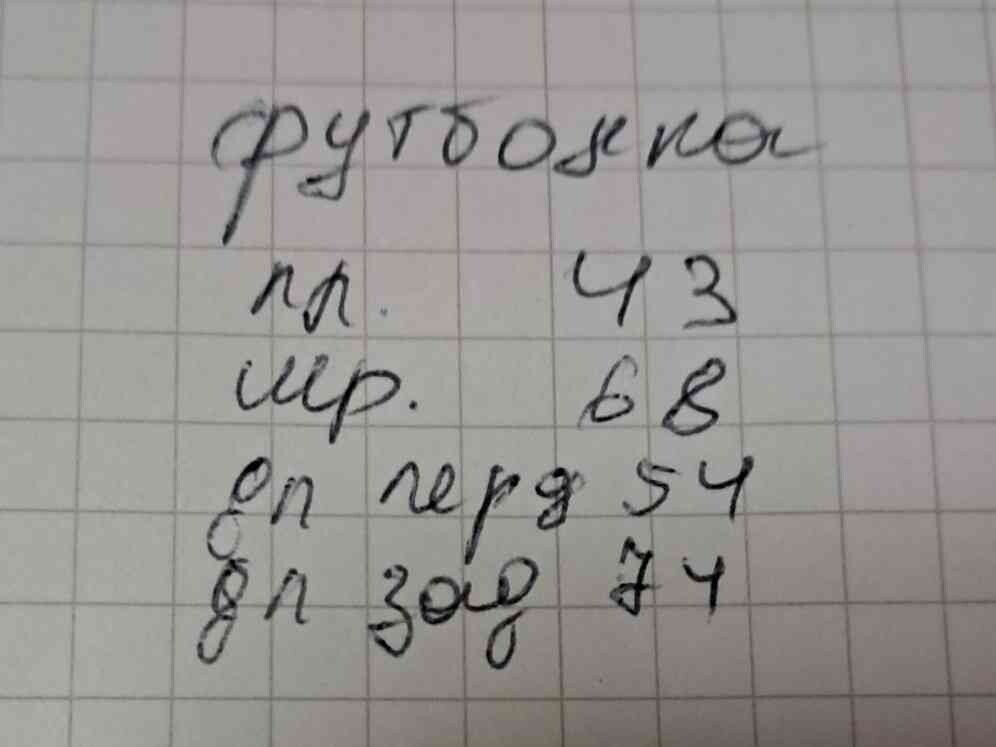 футболка
пл. 43
шр. 68
дл перд 54
дл зад 74